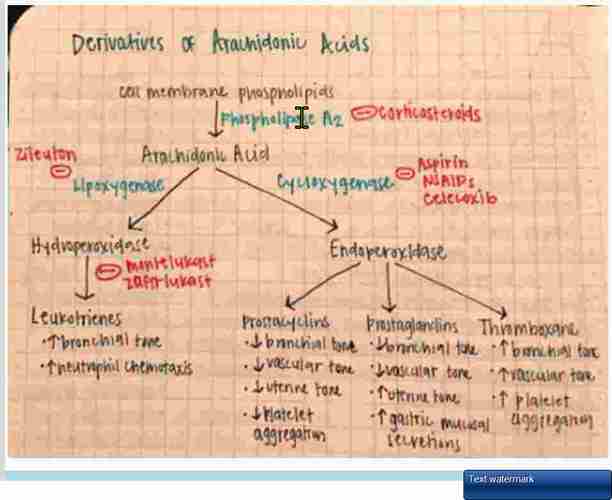 Derivatives of Arachidonic Acids
cell membrane phospholipids
Phospholipase A2
⊖ Corticosteroids
Zileuton
⊖
Lipoxygenase
Arachidonic Acid
Cycloxygenase
⊖ Aspirin
NSAIDs
Celecoxib
Hydroperoxidase
⊖ montelukast
zafirlukast
Endoperoxidase
Leukotrienes
• ↑ bronchial tone
• ↑ neutrophil chemotaxis
Prostacyclins
• ↓ bronchial tone
• ↓ vascular tone
• ↓ uterine tone
• ↓ platelet
aggregation
Prostaglandins
• ↓ bronchial tone
• ↓ vascular tone
• ↑ uterine tone
• ↑ gastric mucosal
secretions
Thromboxane
• ↑ bronchial tone
• ↑ vascular tone
• ↑ platelet
aggregation
Text watermark